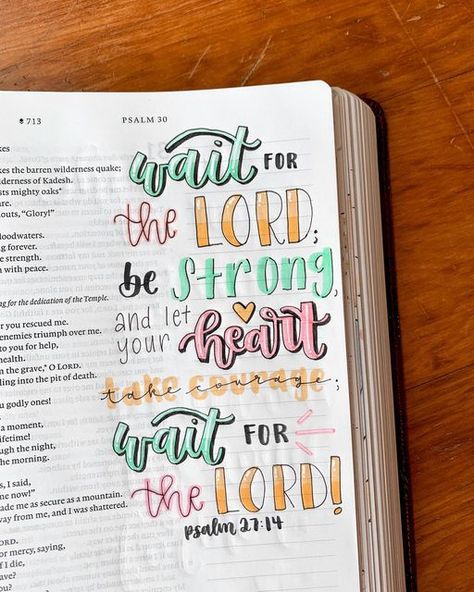 713
PSALM 30
kes the barren wilderness quake;
lderness of Kadesh.
sts mighty oaks
are.
outs, “Glory!”
loodwaters.
ng forever.
e strength.
n with peace.
ng for the dedication of the Temple.
r you rescued me.
enemies triumph over me.
to you for help,
health.
n the grave, O LORD.
lling into the pit of death.
godly ones!
a moment,
ifetime!
ugh the night,
the morning.
s, I said,
me now!”
ade me as secure as a mountain.
way from me, and I was shattered.
ORD.
or mercy, saying,
f I die,
ave?
wait for
the LORD;
be strong,
and let
your heart
take courage;
wait for
the LORD!
psalm 27:14